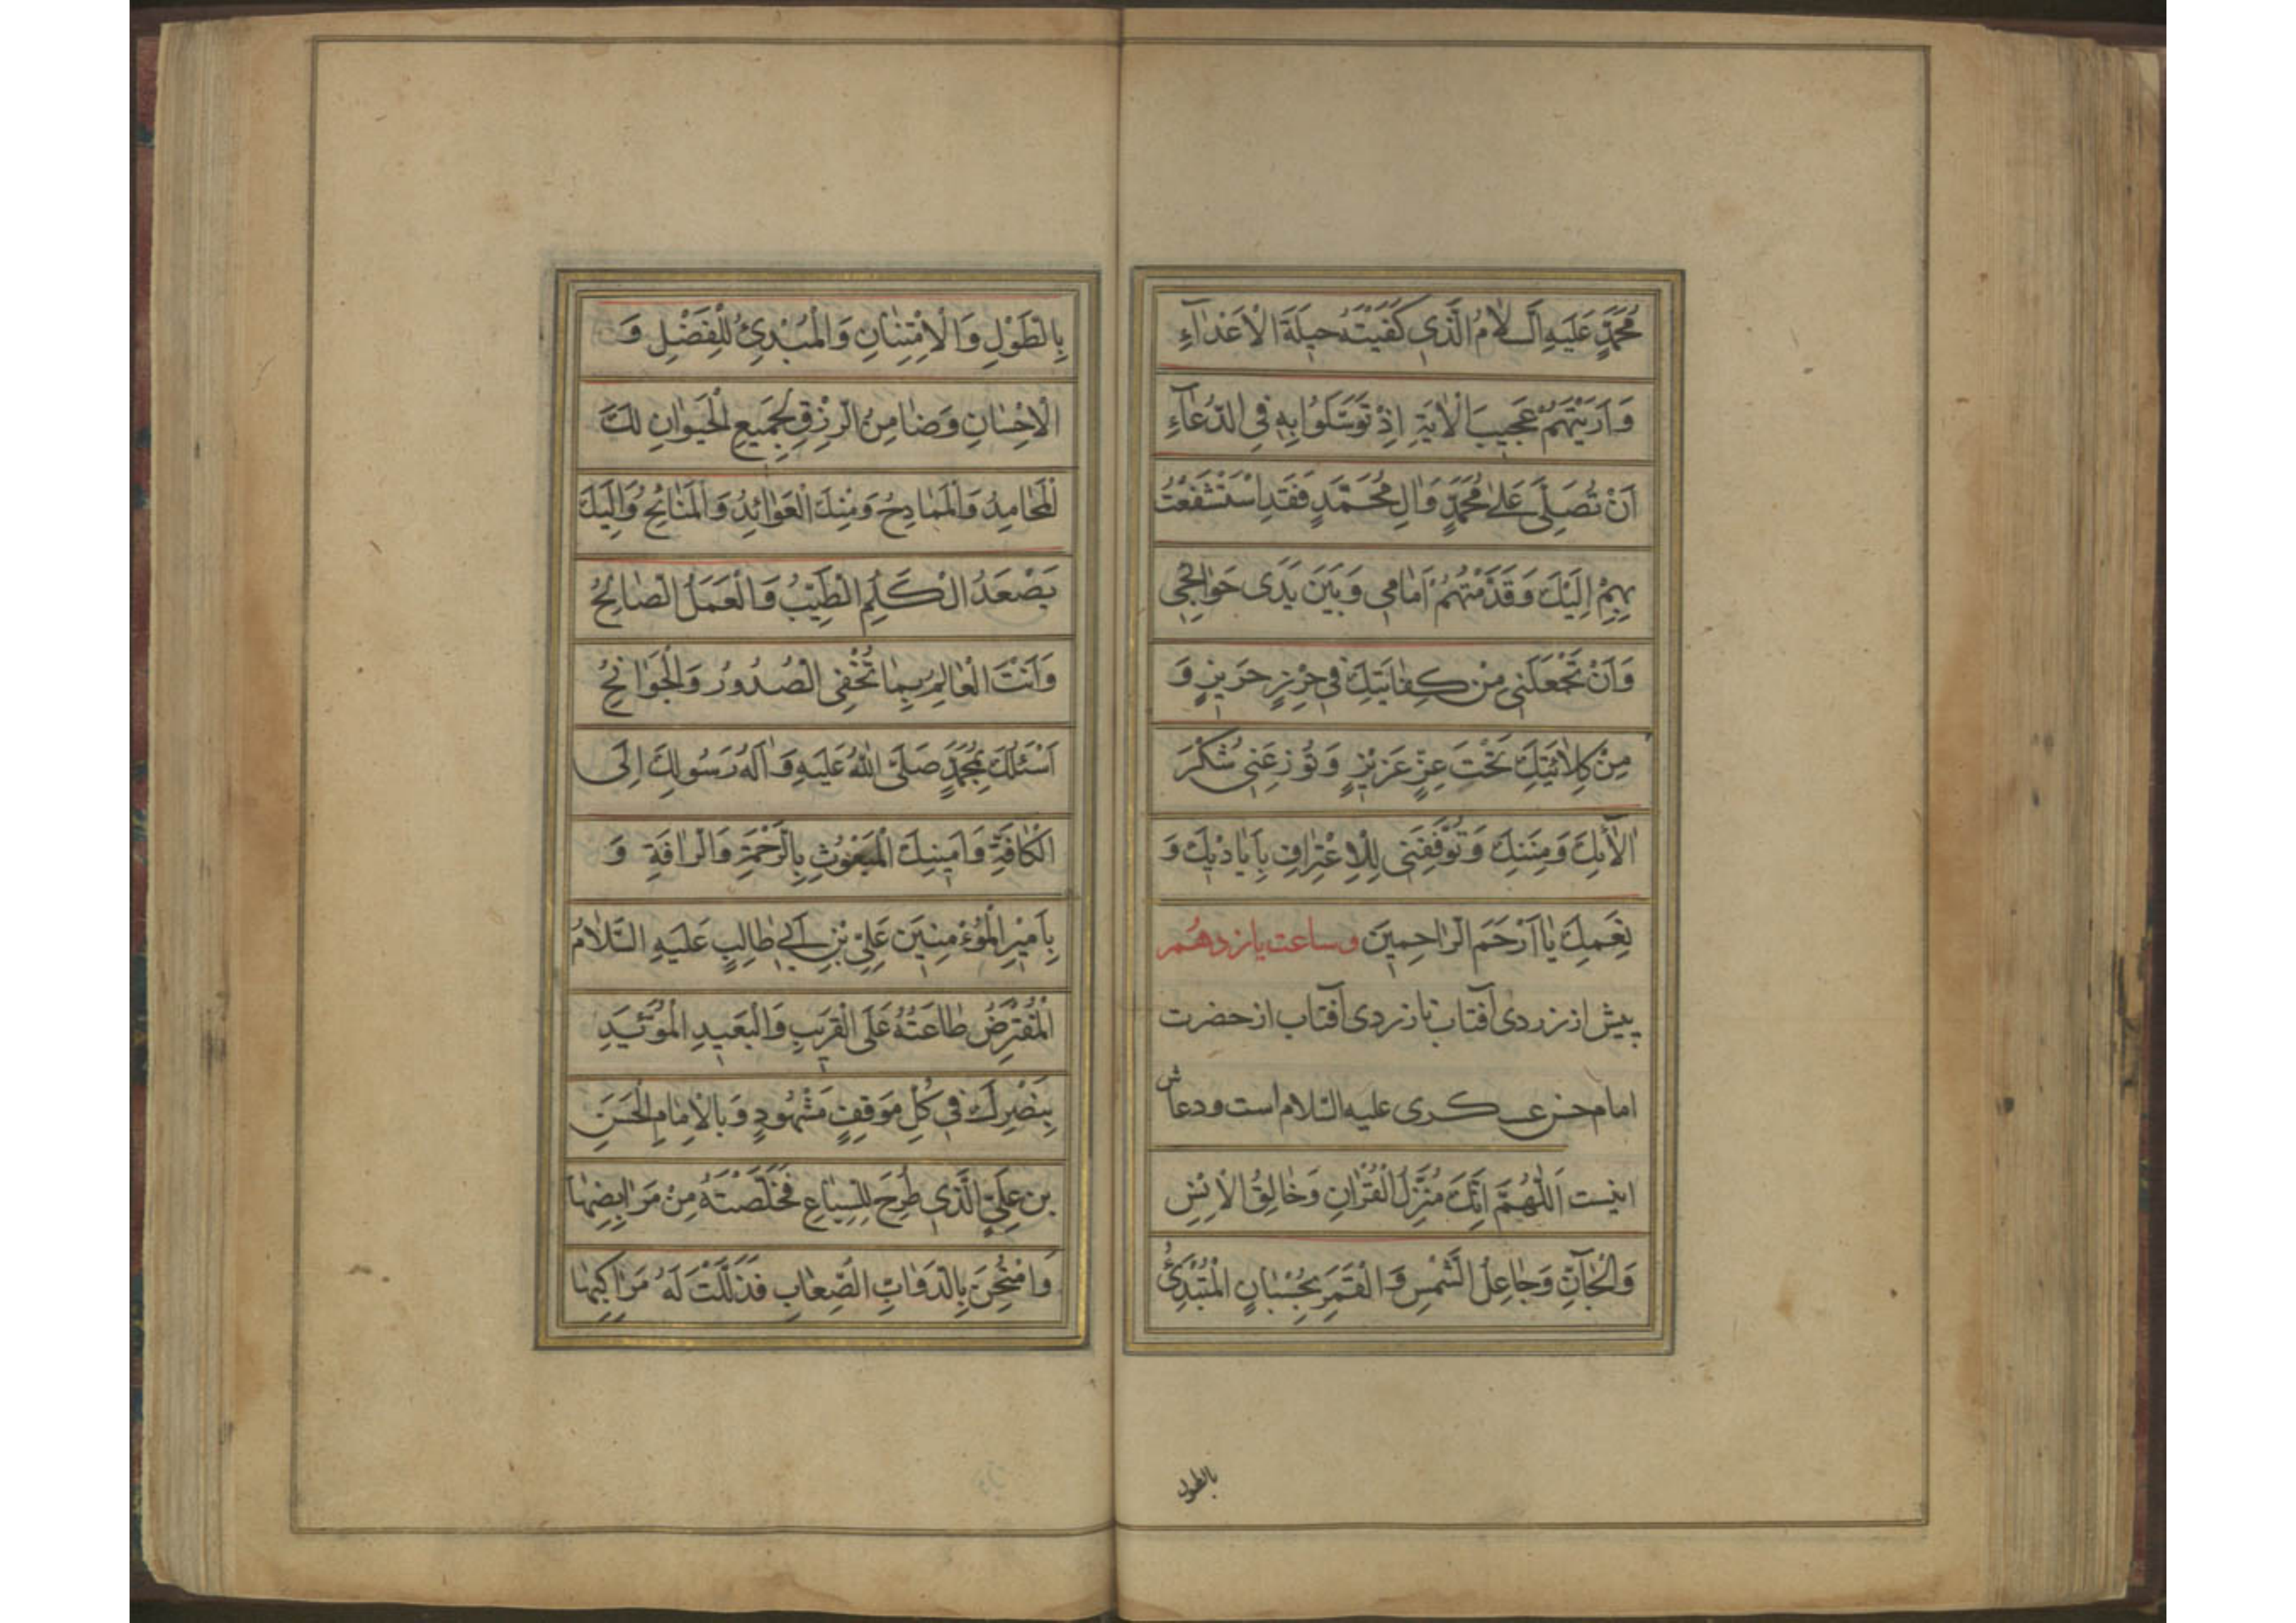 مُحَمَّدٍ عَلَيْهِ السَّلَامُ الَّذي كَفَيْتَهُ حيلَةَ الْاَعْدٰآءِ
وَاَرَيْتَهُمْ عَجيبَ الْاٰيَةِ اِذْ تَوَسَّلُوا بِهِ فِي الدُّعٰآءِ
اَنْ تُصَلِّيَ عَلىٰ مُحَمَّدٍ وَاٰلِ مُحَمَّدٍ فَقَدِ اسْتَشْفَعْتُ
بِهِمْ اِلَيْكَ وَقَدَّمْتُهُمْ اَمٰامي وَبَيْنَ يَدَى حَوٰائِجي
وَاَنْ تَجْعَلَني مِنْ كِفٰايَتِكَ في حِرْزٍ حَريزٍ وَ
مِنْ كِلٰائَتِكَ تَحْتَ عِزٍّ عَزيزٍ وَتُوزِعَني شُكْرَ
اٰلٰائِكَ وَمِنَنِكَ وَتُوَفِّقَني لِلْاِعْتِرٰافِ بِاَيٰاديكَ وَ
نِعَمِكَ يٰا اَرْحَمَ الرّٰاحِمينَ وساعت یازدهم
پیش از زردی آفتاب تا زردی آفتاب از حضرت
امام حسن عسکری علیه السلام است ودعاش
اینست اَللّٰهُمَّ اِنَّكَ مُنْزِلُ الْقُرْاٰنِ وَخٰالِقُ الْاِنْسِ
وَالْجٰآنِّ وَجٰاعِلُ الشَّمْسِ وَالْقَمَرِ بِحُسْبٰانٍ الْمُبْتَدِئُ
بالطول
بِالطَّوْلِ وَالْاِمْتِنٰانِ وَالْمُبْدِئُ لِلْفَضْلِ وَ
الْاِحْسٰانِ وَضٰامِنُ الرِّزْقِ لِجَميعِ الْحَيَوٰانِ لَكَ
الْمَحٰامِدُ وَالْمَمٰادِحُ وَمِنْكَ الْعَوٰائِدُ وَالْمَنٰائِحُ وَاِلَيْكَ
يَصْعَدُ الْكَلِمُ الطَّيِّبُ وَالْعَمَلُ الصّٰالِحُ
وَاَنْتَ الْعٰالِمُ بِمٰا تُخْفِي الصُّدُورُ وَالْجَوٰانِحُ
اَسْئَلُكَ بِمُحَمَّدٍ صَلَّى اللّٰهُ عَلَيْهِ وَاٰلِهِ رَسُولِكَ اِلَى
الْكٰافَّةِ وَاَمينِكَ الْمَبْعُوثِ بِالرَّحْمَةِ وَالرَّافَةِ وَ
بِاَميرِ الْمُؤْمِنينَ عَلِيِّ بْنِ اَبي طٰالِبٍ عَلَيْهِ السَّلٰامُ
الْمُفْتَرَضُ طٰاعَتُهُ عَلَى الْقَريبِ وَالْبَعيدِ الْمُؤَيَّدِ
بِنَصْرِكَ في كُلِّ مَوْقِفٍ مَشْهُودٍ وَبِالْاِمٰامِ الْحَسَنِ
بْنِ عَلِيٍّ الَّذي طُرِحَ لِلسِّبٰاعِ فَخَلَّصْتَهُ مِنْ مَرٰابِضِهٰا
وَامْتُحِنَ بِالدَّوٰابِّ الصِّعٰابِ فَذَلَّلْتَ لَهُ مَرٰاكِبَهٰا